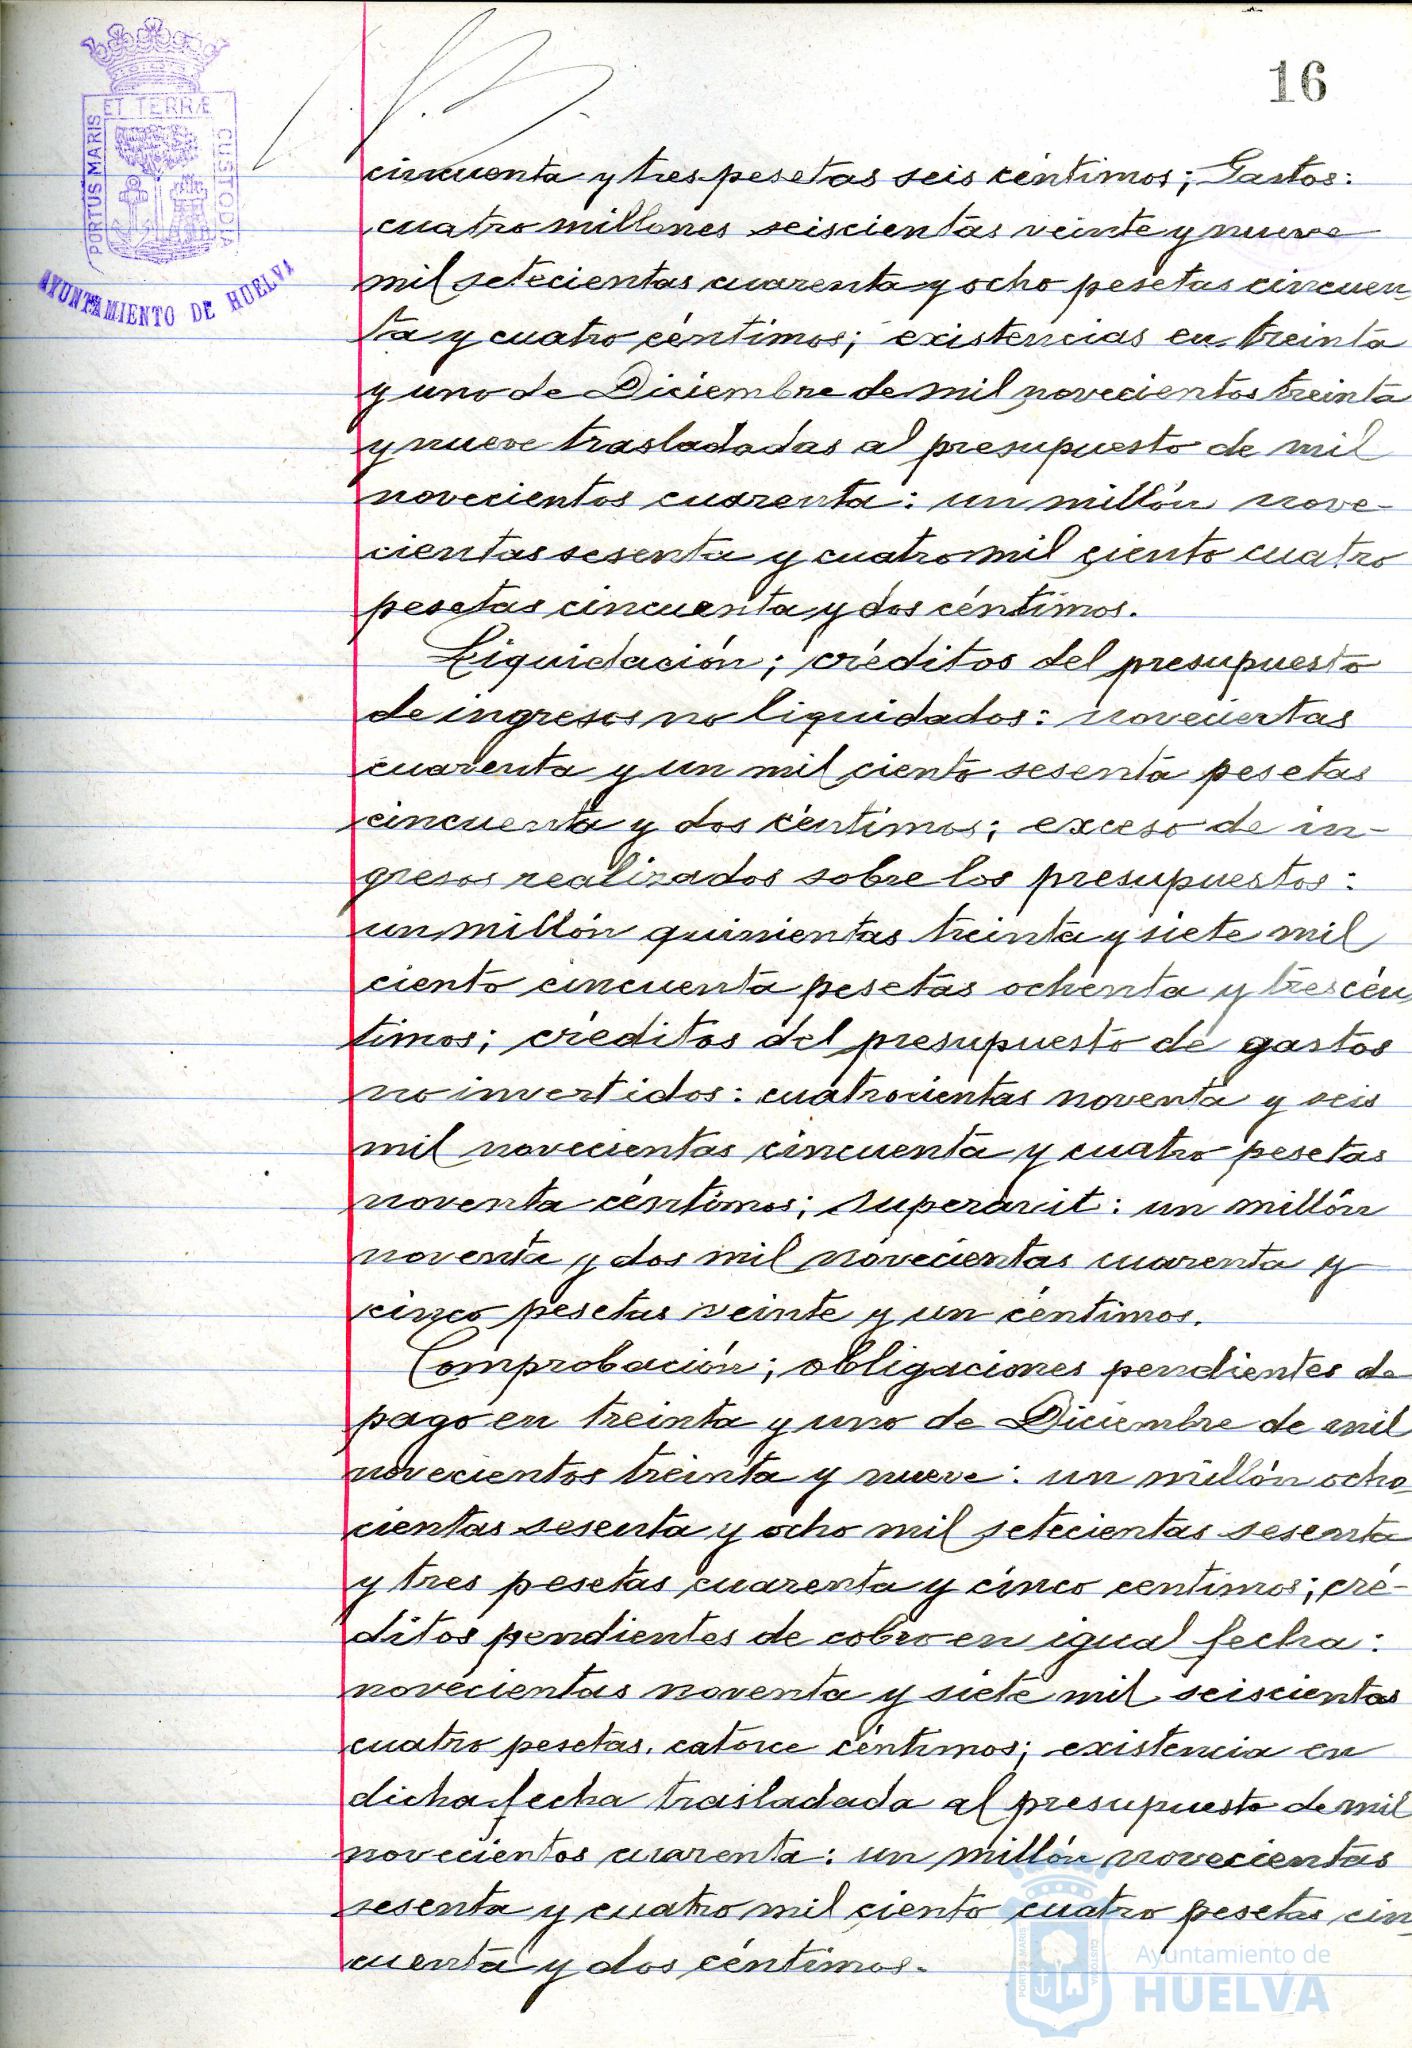 16
ET TERRÆ
PORTUS MARIS
CUSTODIA
AYUNTAMIENTO DE HUELVA
cincuenta y tres pesetas seis céntimos; Gastos:
cuatro millones seiscientas veinte y nueve
mil setecientas cuarenta y ocho pesetas cincuen
ta y cuatro céntimos; existencias en treinta
y uno de Diciembre de mil novecientos treinta
y nueve trasladadas al presupuesto de mil
novecientos cuarenta: un millón nove-
cientas sesenta y cuatro mil ciento cuatro
pesetas cincuenta y dos céntimos.
Liquidación; créditos del presupuesto
de ingresos no liquidados: novecientas
cuarenta y un mil ciento sesenta pesetas
cincuenta y dos céntimos; exceso de in-
gresos realizados sobre los presupuestos:
un millón quinientas treinta y siete mil
ciento cincuenta pesetas ochenta y tres cén
timos; créditos del presupuesto de gastos
no invertidos: cuatrocientas noventa y seis
mil novecientas cincuenta y cuatro pesetas
noventa céntimos; superavit: un millón
noventa y dos mil novecientas cuarenta y
cinco pesetas veinte y un céntimos.
Comprobación; obligaciones pendientes de
pago en treinta y uno de Diciembre de mil
novecientos treinta y nueve: un millón ocho
cientas sesenta y ocho mil setecientas sesenta
y tres pesetas cuarenta y cinco centimos; cré-
ditos pendientes de cobro en igual fecha:
novecientas noventa y siete mil seiscientas
cuatro pesetas. catorce céntimos; existencia en
dicha fecha trasladada al presupuesto de mil
novecientos cuarenta: un millón novecientas
sesenta y cuatro mil ciento cuatro pesetas cin
cuenta y dos céntimos.
Ayuntamiento de
HUELVA